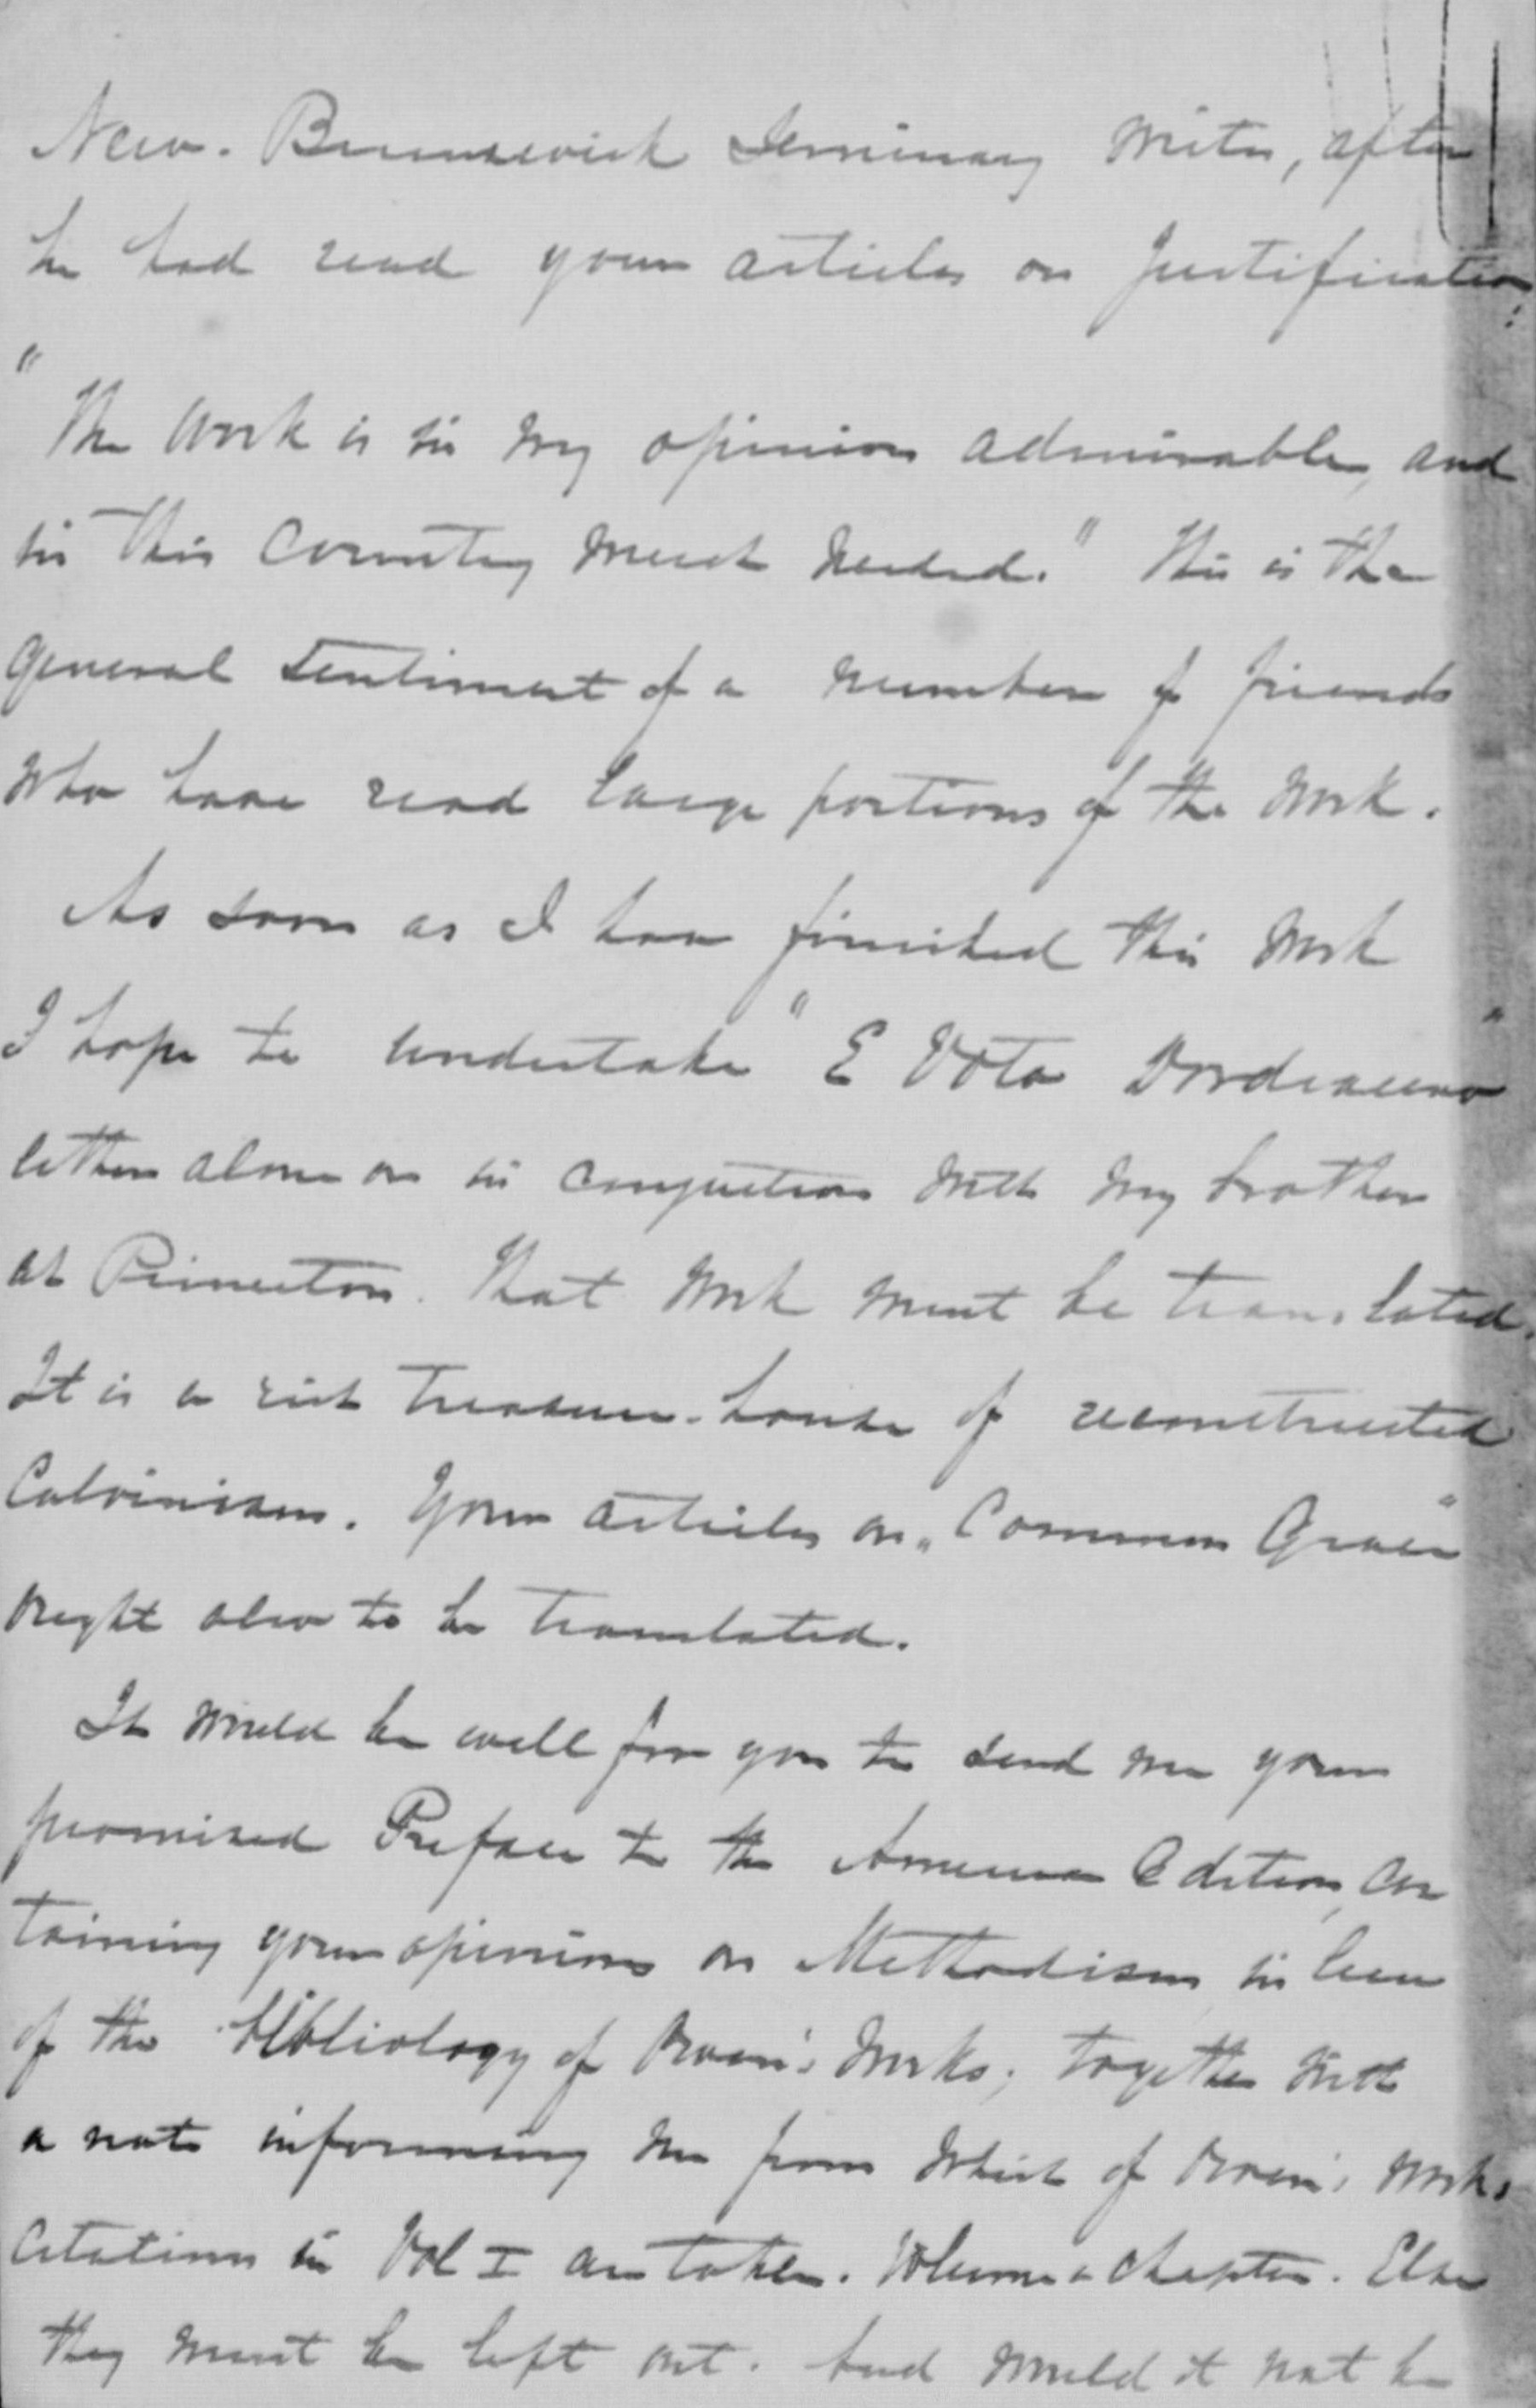 New-Brunswick Seminary writes, after
he had read your articles on Justification:
"The work is in my opinion admirable, and
in this country much needed." This is the
general sentiment of a number of friends
who have read large portions of the work.
As soon as I have finished this work
I hope to undertake "E Voto Dordraceno"
either alone or in conjuction with my brother
at Princeton. That work must be translated.
It is a rich treasure-house of reconstructed
Calvinism. Your articles on „Common Grace"
ought also to be translated.
It would be well for you to send me your
promised Preface to the American Edition, con
taining your opinions on Methodism in lieu
of the bibliology of Owen's works; together with
a note informing me from which of Owen's works
citations in Vol I are taken. Volume & chapter. Else
they must be left out. And would it not be